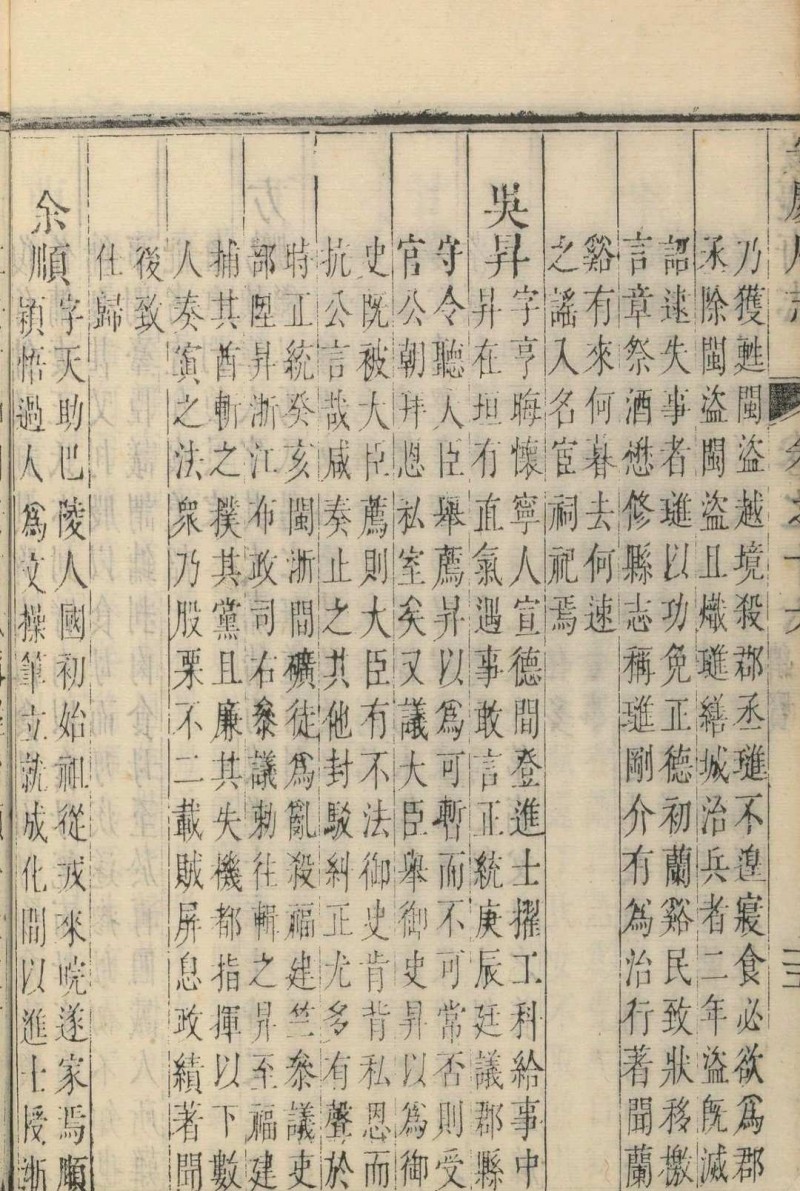 乃獲甦閩盜越境殺郡丞璡不遑寢食必欲為郡
丞除閩盜閩盜且熾璡繕城治兵者二年盜既滅
詔逮失事者璡以功免正德初蘭谿民致狀移檄
言章祭酒懋修縣志稱璡剛介有為治行著聞蘭
谿有來何暮去何速
之謠入名宦祠祀焉
吳昇字亨晦懷寧人宣德間登進士擢工科給事中
昇在垣有直氣遇事敢言正統庚辰廷議郡縣
守令聽人臣舉薦昇以為可暫而不可常否則受
官公朝拜恩私室矣又議大臣舉御史昇以為御
史既被大臣薦則大臣有不法御史肯背私恩而
抗公言哉咸奏止之其他封駁糾正尤多有聲於
時正統癸亥閩浙間礦徒為亂殺福建竺參議吏
部陞昇浙江布政司右參議勑往輯之昇至福建
捕其酋斬之撲其黨且廉其失機都指揮以下數
人奏寘之法衆乃股栗不二載賊屏息政績著聞
後致
仕歸
余順字天助巴陵人國初始祖從戎來皖遂家焉順
穎悟過人為文操筆立就成化間以進士授浙